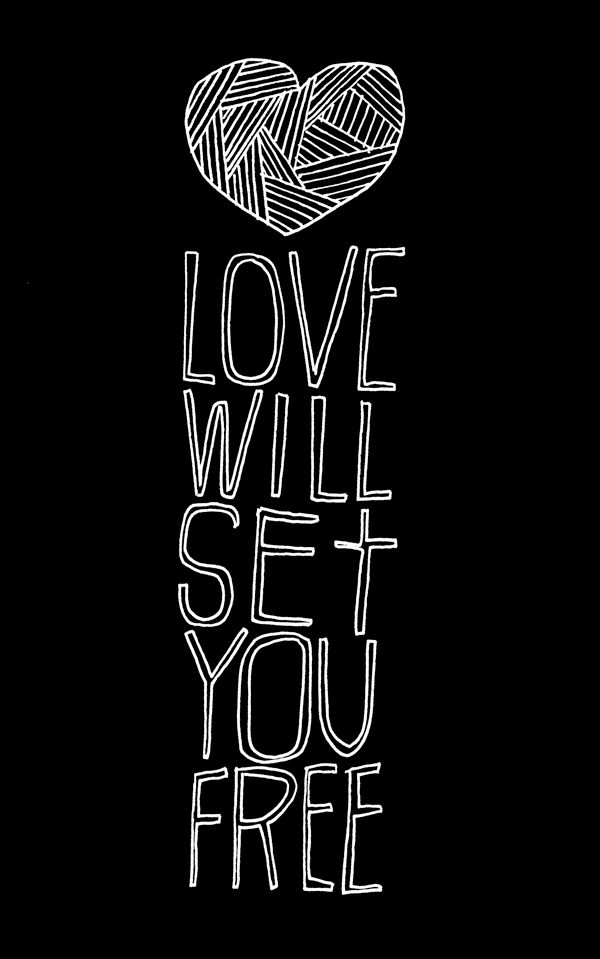 LOVE
WILL
SEt
YOU
FREE